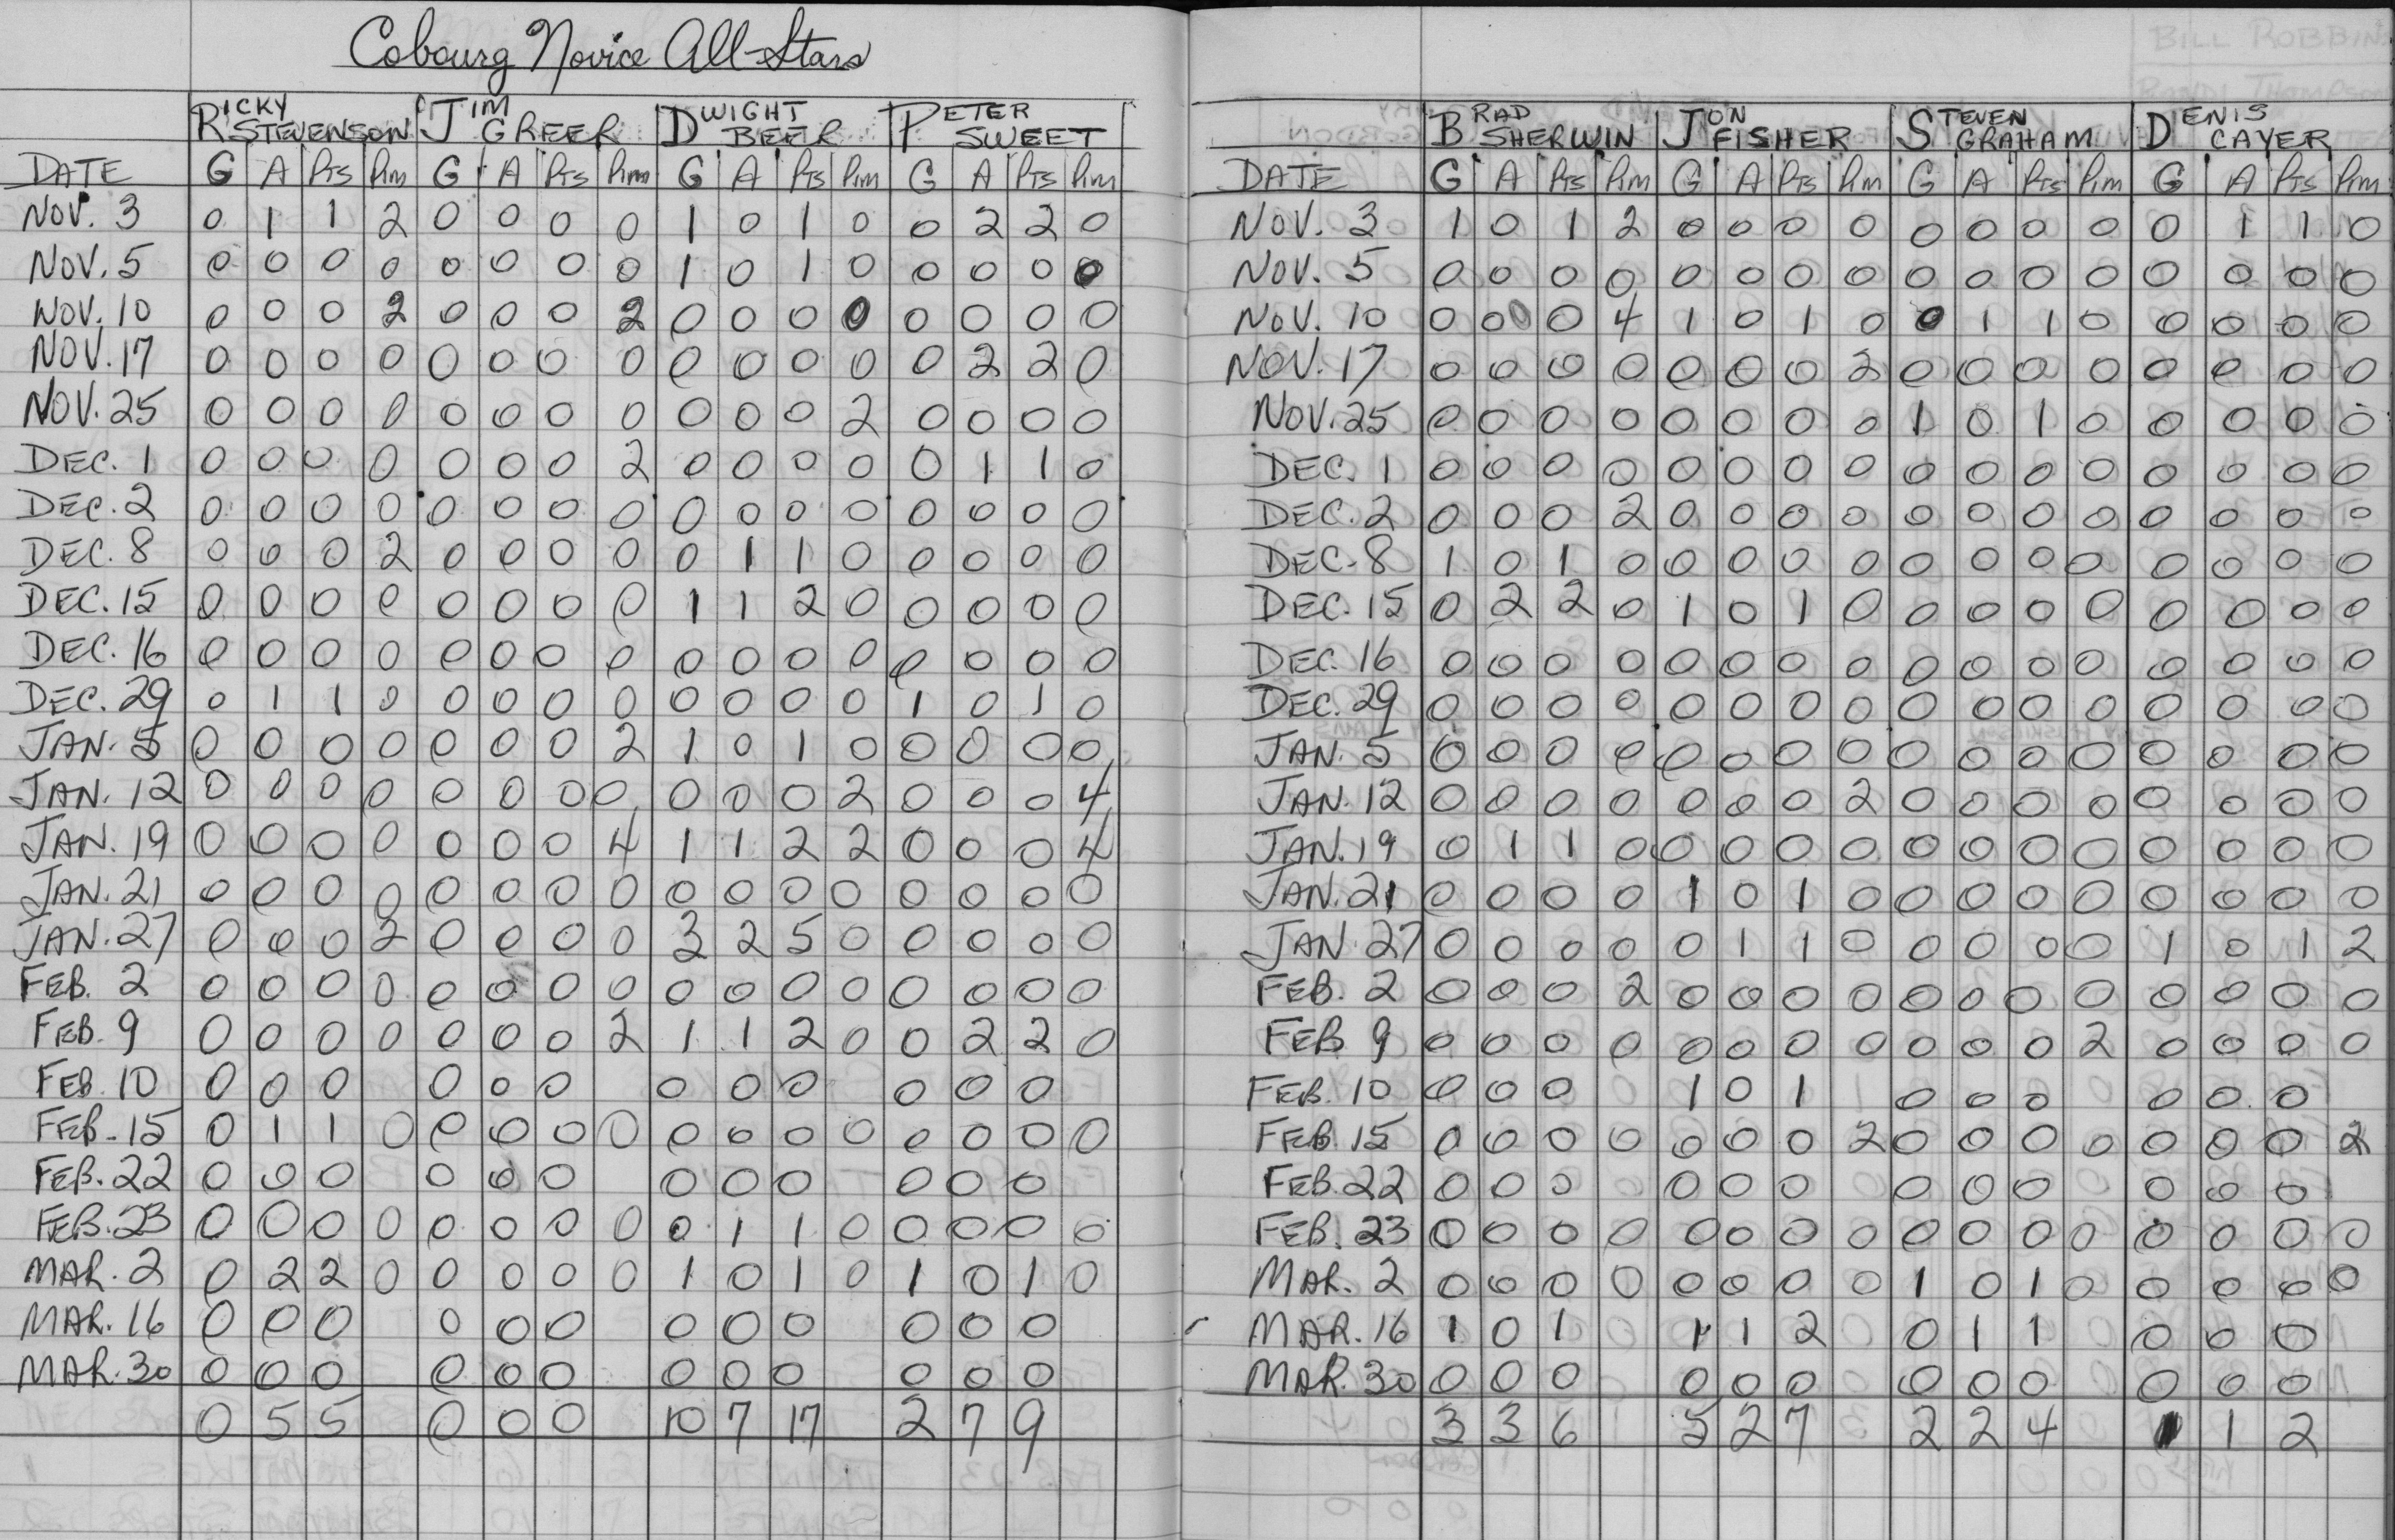 Cobourg Novice All-Stars
RICKY STEVENSON JIM GREER DWIGHT BEER PETER SWEET
DATE G A Pts Pim G A Pts Pim G A Pts Pim G A Pts Pim
NOV. 3 0 1 1 2 0 0 0 0 1 0 1 0 0 2 2 0
NOV. 5 0 0 0 0 0 0 0 0 1 0 1 0 0 0 0 0
NOV. 10 0 0 0 2 0 0 0 2 0 0 0 0 0 0 0 0
NOV. 17 0 0 0 0 0 0 0 0 0 0 0 0 0 2 2 0
NOV. 25 0 0 0 0 0 0 0 0 0 0 0 2 0 0 0 0
DEC. 1 0 0 0 0 0 0 0 2 0 0 0 0 0 1 1 0
DEC. 2 0 0 0 0 0 0 0 0 0 0 0 0 0 0 0 0
DEC. 8 0 0 0 2 0 0 0 0 0 1 1 0 0 0 0 0
DEC. 15 0 0 0 0 0 0 0 0 1 1 2 0 0 0 0 0
DEC. 16 0 0 0 0 0 0 0 0 0 0 0 0 0 0 0 0
DEC. 29 0 1 1 0 0 0 0 0 0 0 0 0 1 0 1 0
JAN. 5 0 0 0 0 0 0 0 2 1 0 1 0 0 0 0 0
JAN. 12 0 0 0 0 0 0 0 0 0 0 0 2 0 0 0 4
JAN. 19 0 0 0 0 0 0 0 4 1 1 2 2 0 0 0 4
JAN. 21 0 0 0 0 0 0 0 0 0 0 0 0 0 0 0 0
JAN. 27 0 0 0 2 0 0 0 0 3 2 5 0 0 0 0 0
FEB. 2 0 0 0 0 0 0 0 0 0 0 0 0 0 0 0 0
FEB. 9 0 0 0 0 0 0 0 2 1 1 2 0 0 2 2 0
FEB. 10 0 0 0 0 0 0 0 0 0 0 0 0
FEB-15 0 1 1 0 0 0 0 0 0 0 0 0 0 0 0 0
FEB. 22 0 0 0 0 0 0 0 0 0 0 0 0
FEB. 23 0 0 0 0 0 0 0 0 0 1 1 0 0 0 0 0
MAR. 2 0 2 2 0 0 0 0 0 1 0 1 0 1 0 1 0
MAR. 16 0 0 0 0 0 0 0 0 0 0 0 0
MAR. 30 0 0 0 0 0 0 0 0 0 0 0 0
0 5 5 0 0 0 10 7 17 2 7 9
BRAD SHERWIN JON FISHER STEVEN GRAHAM DENIS CAYER
DATE G A Pts Pim G A Pts Pim G A Pts Pim G A Pts Pim
NOV. 3 1 0 1 2 0 0 0 0 0 0 0 0 0 1 1 0
NOV. 5 0 0 0 0 0 0 0 0 0 0 0 0 0 0 0 0
NOV. 10 0 0 0 4 1 0 1 0 0 1 1 0 0 0 0 0
NOV. 17 0 0 0 0 0 0 0 2 0 0 0 0 0 0 0 0
NOV. 25 0 0 0 0 0 0 0 0 1 0 1 0 0 0 0 0
DEC. 1 0 0 0 0 0 0 0 0 0 0 0 0 0 0 0 0
DEC. 2 0 0 0 2 0 0 0 0 0 0 0 0 0 0 0 0
DEC. 8 1 0 1 0 0 0 0 0 0 0 0 0 0 0 0 0
DEC. 15 0 2 2 0 1 0 1 0 0 0 0 0 0 0 0 0
DEC. 16 0 0 0 0 0 0 0 0 0 0 0 0 0 0 0 0
DEC. 29 0 0 0 0 0 0 0 0 0 0 0 0 0 0 0 0
JAN. 5 0 0 0 0 0 0 0 0 0 0 0 0 0 0 0 0
JAN. 12 0 0 0 0 0 0 0 2 0 0 0 0 0 0 0 0
JAN. 19 0 1 1 0 0 0 0 0 0 0 0 0 0 0 0 0
JAN. 21 0 0 0 0 1 0 1 0 0 0 0 0 0 0 0 0
JAN. 27 0 0 0 0 0 1 1 0 0 0 0 0 1 0 1 2
FEB. 2 0 0 0 2 0 0 0 0 0 0 0 0 0 0 0 0
FEB 9 0 0 0 0 0 0 0 0 0 0 0 2 0 0 0 0
FEB. 10 0 0 0 1 0 1 0 0 0 0 0 0
FEB. 15 0 0 0 0 0 0 0 2 0 0 0 0 0 0 0 2
FEB. 22 0 0 0 0 0 0 0 0 0 0 0 0
FEB. 23 0 0 0 0 0 0 0 0 0 0 0 0 0 0 0 0
MAR. 2 0 0 0 0 0 0 0 0 1 0 1 0 0 0 0 0
MAR. 16 1 0 1 1 1 2 0 1 1 0 0 0
MAR. 30 0 0 0 0 0 0 0 0 0 0 0 0
3 3 6 5 2 7 2 2 4 1 1 2